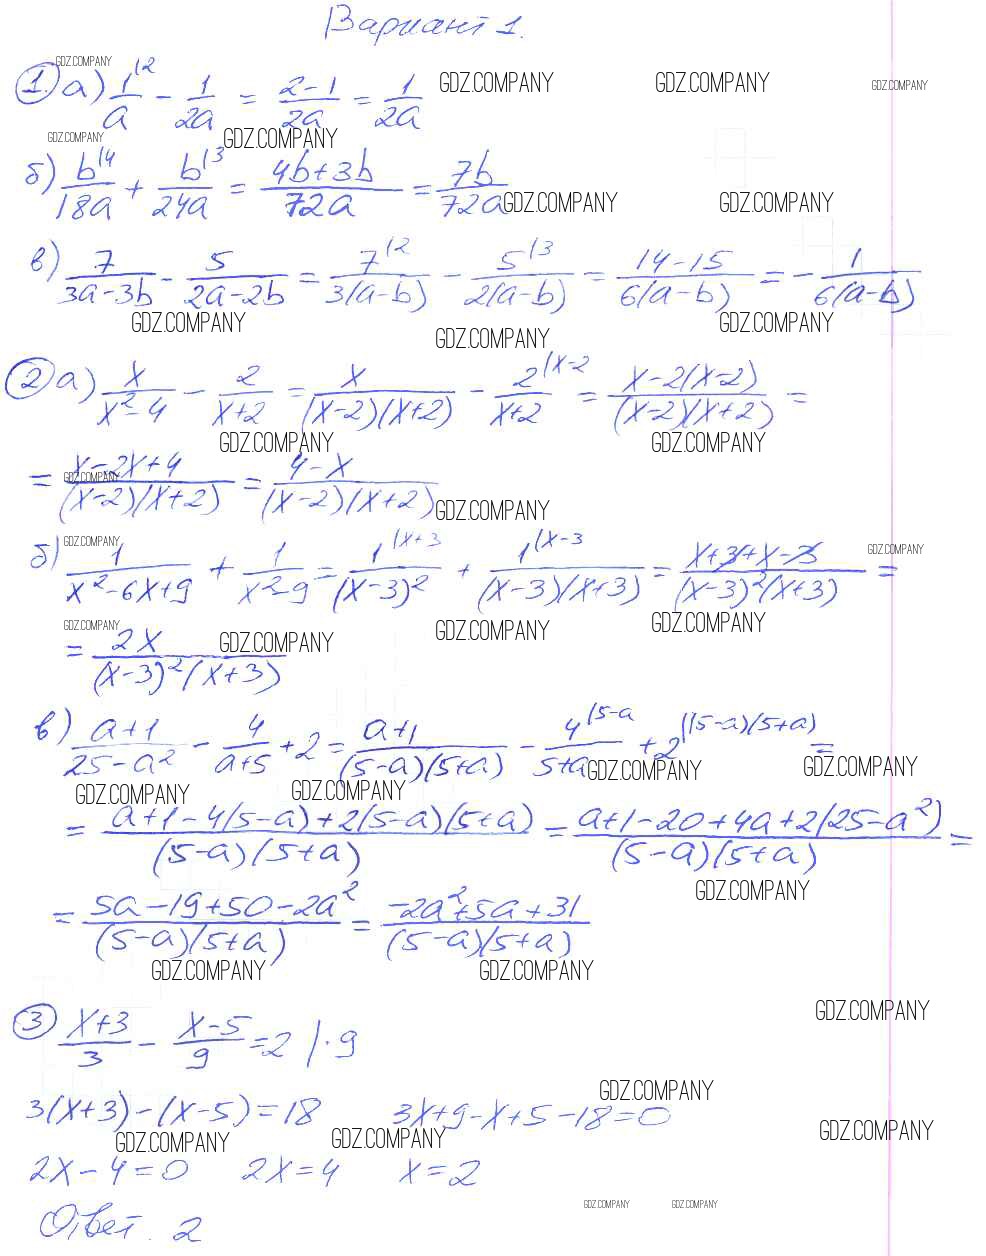 Вариант 1.
GDZ.COMPANY
① а) 1/a |2 − 1/2a = (2−1)/2a = 1/2a GDZ.COMPANY GDZ.COMPANY GDZ.COMPANY
GDZ.COMPANY GDZ.COMPANY
б) b/18a |4 + b/24a |3 = (4b+3b)/72a = 7b/72a GDZ.COMPANY GDZ.COMPANY
в) 7/(3a−3b) − 5/(2a−2b) = 7/3(a−b) |2 − 5/2(a−b) |3 = (14−15)/6(a−b) = − 1/6(a−b)
GDZ.COMPANY GDZ.COMPANY GDZ.COMPANY
② а) x/(x²−4) − 2/(x+2) = x/(x−2)(x+2) − 2/(x+2) |x−2 = (x−2(x−2))/(x−2)(x+2) =
GDZ.COMPANY GDZ.COMPANY
= (x−2x+4)/(x−2)(x+2) = (4−x)/(x−2)(x+2) GDZ.COMPANY GDZ.COMPANY
GDZ.COMPANY GDZ.COMPANY
б) 1/(x²−6x+9) + 1/(x²−9) = 1/(x−3)² |x+3 + 1/(x−3)(x+3) |x−3 = (x+3+x−3)/(x−3)²(x+3) =
GDZ.COMPANY GDZ.COMPANY GDZ.COMPANY GDZ.COMPANY
= 2x/(x−3)²(x+3)
в) (a+1)/(25−a²) − 4/(a+5) + 2 = (a+1)/(5−a)(5+a) − 4/(5+a) |5−a + 2 |(5−a)(5+a) =
GDZ.COMPANY GDZ.COMPANY GDZ.COMPANY GDZ.COMPANY
= (a+1−4(5−a)+2(5−a)(5+a))/(5−a)(5+a) = (a+1−20+4a+2(25−a²))/(5−a)(5+a) =
GDZ.COMPANY
= (5a−19+50−2a²)/(5−a)(5+a) = (−2a²+5a+31)/(5−a)(5+a)
GDZ.COMPANY GDZ.COMPANY
GDZ.COMPANY
③ (x+3)/3 − (x−5)/9 = 2 |·9
GDZ.COMPANY
3(x+3)−(x−5)=18 3x+9−x+5−18=0
GDZ.COMPANY GDZ.COMPANY GDZ.COMPANY
2x−4=0 2x=4 x=2
GDZ.COMPANY GDZ.COMPANY
Ответ. 2